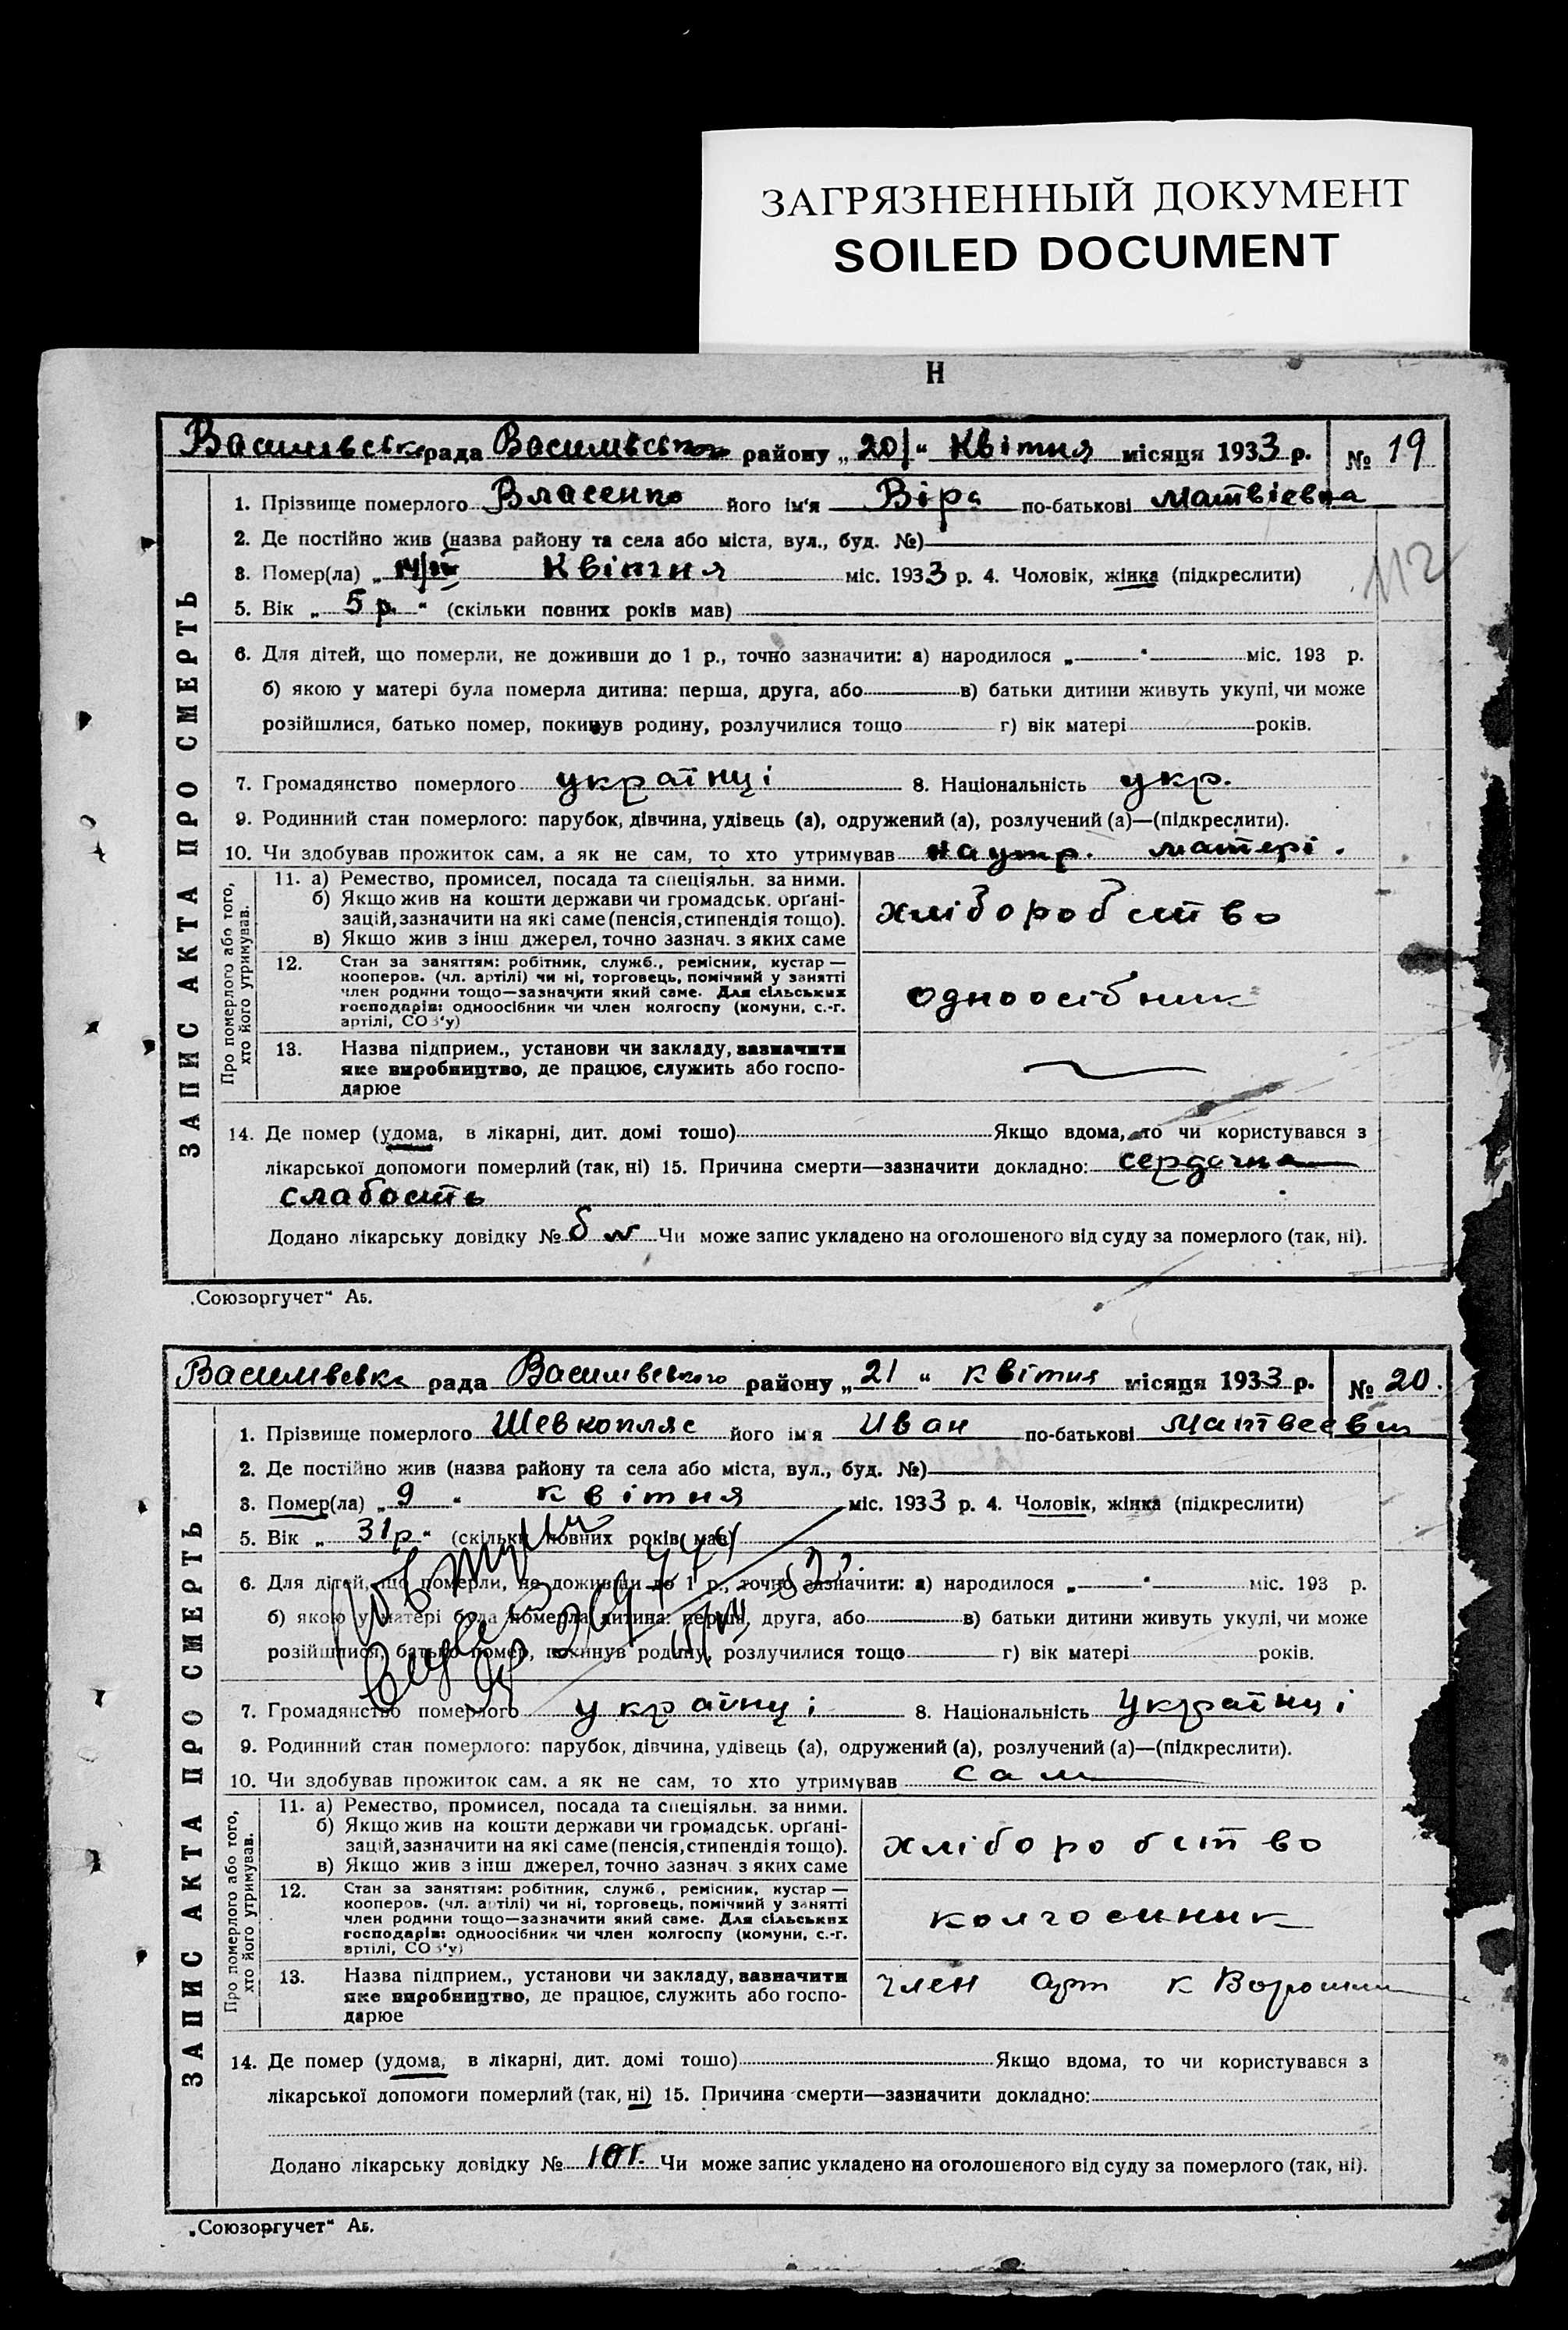 ЗАГРЯЗНЕННЫЙ ДОКУМЕНТ
SOILED DOCUMENT
Н
рада Василівського району „20“ Квітня місяця 1933 р. № 19
ЗАПИС АКТА ПРО СМЕРТЬ
1. Прізвище померлого Власенко його ім'я Віра по-батькові Матвієвна
2. Де постійно жив (назва району та села або міста, вул., буд. №)
112
3. Помер(ла) „ Квітня міс. 1933 р. 4. Чоловік, жінка (підкреслити)
5. Вік „ 5 р. “ (скільки повних років мав)
6. Для дітей, що померли, не доживши до 1 р., точно зазначити: а) народилося „ “ міс. 193 р.
б) якою у матері була померла дитина: перша, друга, або в) батьки дитини живуть укупі, чи може
розійшлися, батько помер, покинув родину, розлучилися тощо г) вік матері років.
7. Громадянство померлого українці 8. Національність укр.
9. Родинний стан померлого: парубок, дівчина, удівець (а), одружений (а), розлучений (а)—(підкреслити).
10. Чи здобував прожиток сам, а як не сам, то хто утримував на утр. матері.
Про померлого або того, хто його утримував.
11. а) Ремество, промисел, посада та спеціяльн. за ними.
б) Якщо жив на кошти держави чи громадськ. орґані-
зацій, зазначити на які саме (пенсія, стипендія тощо).
в) Якщо жив з інш джерел, точно зазнач. з яких саме
хліборобство
12. Стан за заняттям: робітник, служб., ремісник, кустар —
кооперов. (чл. артілі) чи ні, торговець, помічний у занятті
член родини тощо—зазначити який саме. Для сільських
господарів: одноосібник чи член колгоспу (комуни, с.-г.
артілі, СОЗ'у)
одноосібник
13. Назва підприєм., установи чи закладу, зазначити
яке виробництво, де працює, служить або госпо-
дарює
14. Де помер (удома, в лікарні, дит. домі тощо) Якщо вдома, то чи користувався з
лікарської допомоги померлий (так, ні) 15. Причина смерти—зазначити докладно: сердочна
слабость
Додано лікарську довідку № б Чи може запис укладено на оголошеного від суду за померлого (так, ні).
„Союзоргучет“ Аб.
рада Василівського району „21“ квітня місяця 1933 р. № 20.
ЗАПИС АКТА ПРО СМЕРТЬ
1. Прізвище померлого Шевкопляс його ім'я Иван по-батькові
2. Де постійно жив (назва району та села або міста, вул., буд. №)
3. Помер(ла) „ 9 “ квітня міс. 1933 р. 4. Чоловік, жінка (підкреслити)
5. Вік „ 31 р “ (скільки повних років мав)
6. Для дітей, що померли, не доживши до 1 р., точно зазначити: а) народилося „ “ міс. 193 р.
б) якою у матері була померла дитина: перша, друга, або в) батьки дитини живуть укупі, чи може
розійшлися, батько помер, покинув родину, розлучилися тощо г) вік матері років.
7. Громадянство померлого українці 8. Національність Українці
9. Родинний стан померлого: парубок, дівчина, удівець (а), одружений (а), розлучений (а)—(підкреслити).
10. Чи здобував прожиток сам, а як не сам, то хто утримував сам
Про померлого або того, хто його утримував.
11. а) Ремество, промисел, посада та спеціяльн. за ними.
б) Якщо жив на кошти держави чи громадськ. орґані-
зацій, зазначити на які саме (пенсія, стипендія тощо).
в) Якщо жив з інш джерел, точно зазнач. з яких саме
хліборобство
12. Стан за заняттям: робітник, служб., ремісник, кустар —
кооперов. (чл. артілі) чи ні, торговець, помічний у занятті
член родини тощо—зазначити який саме. Для сільських
господарів: одноосібник чи член колгоспу (комуни, с.-г.
артілі, СОЗ'у)
колгоспник
13. Назва підприєм., установи чи закладу, зазначити
яке виробництво, де працює, служить або госпо-
дарює
член арт к
14. Де помер (удома, в лікарні, дит. домі тощо) Якщо вдома, то чи користувався з
лікарської допомоги померлий (так, ні) 15. Причина смерти—зазначити докладно:
Додано лікарську довідку № Чи може запис укладено на оголошеного від суду за померлого (так, ні).
„Союзоргучет“ Аб.